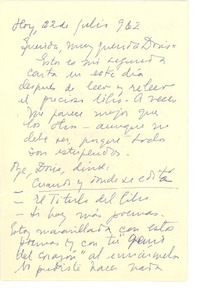 Hoy, 22 de julio 962
Querida, muy querida Doris
Esta es mi segunda
carta en este día
después de leer y releer
el precioso lilis. A veces
me parece mejor que
los otros — aunque no
debe ser, porque todos
son estupendos.
Oye, Doris, dime:
— Cuando y donde se edita
— El Título del Libro
— Si hay más poemas.
Estoy maravillada con estos
poemas y con tu "
del corazón" al enviármelo
No pudiste hacer nada